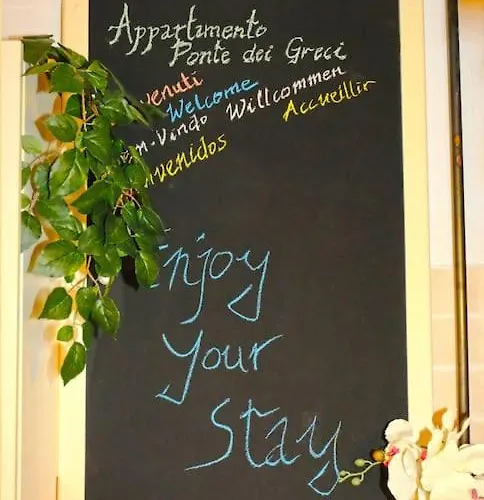 Appartamento
Ponte dei Greci
venuti
Welcome Willcommen
m-Vindo Accueillir
nvenidos
Enjoy
Your
Stay